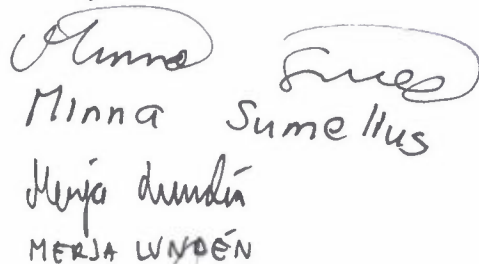 Minna Sumel
Minna Sumelius
Merja Lundén
MERJA LUNDÉN